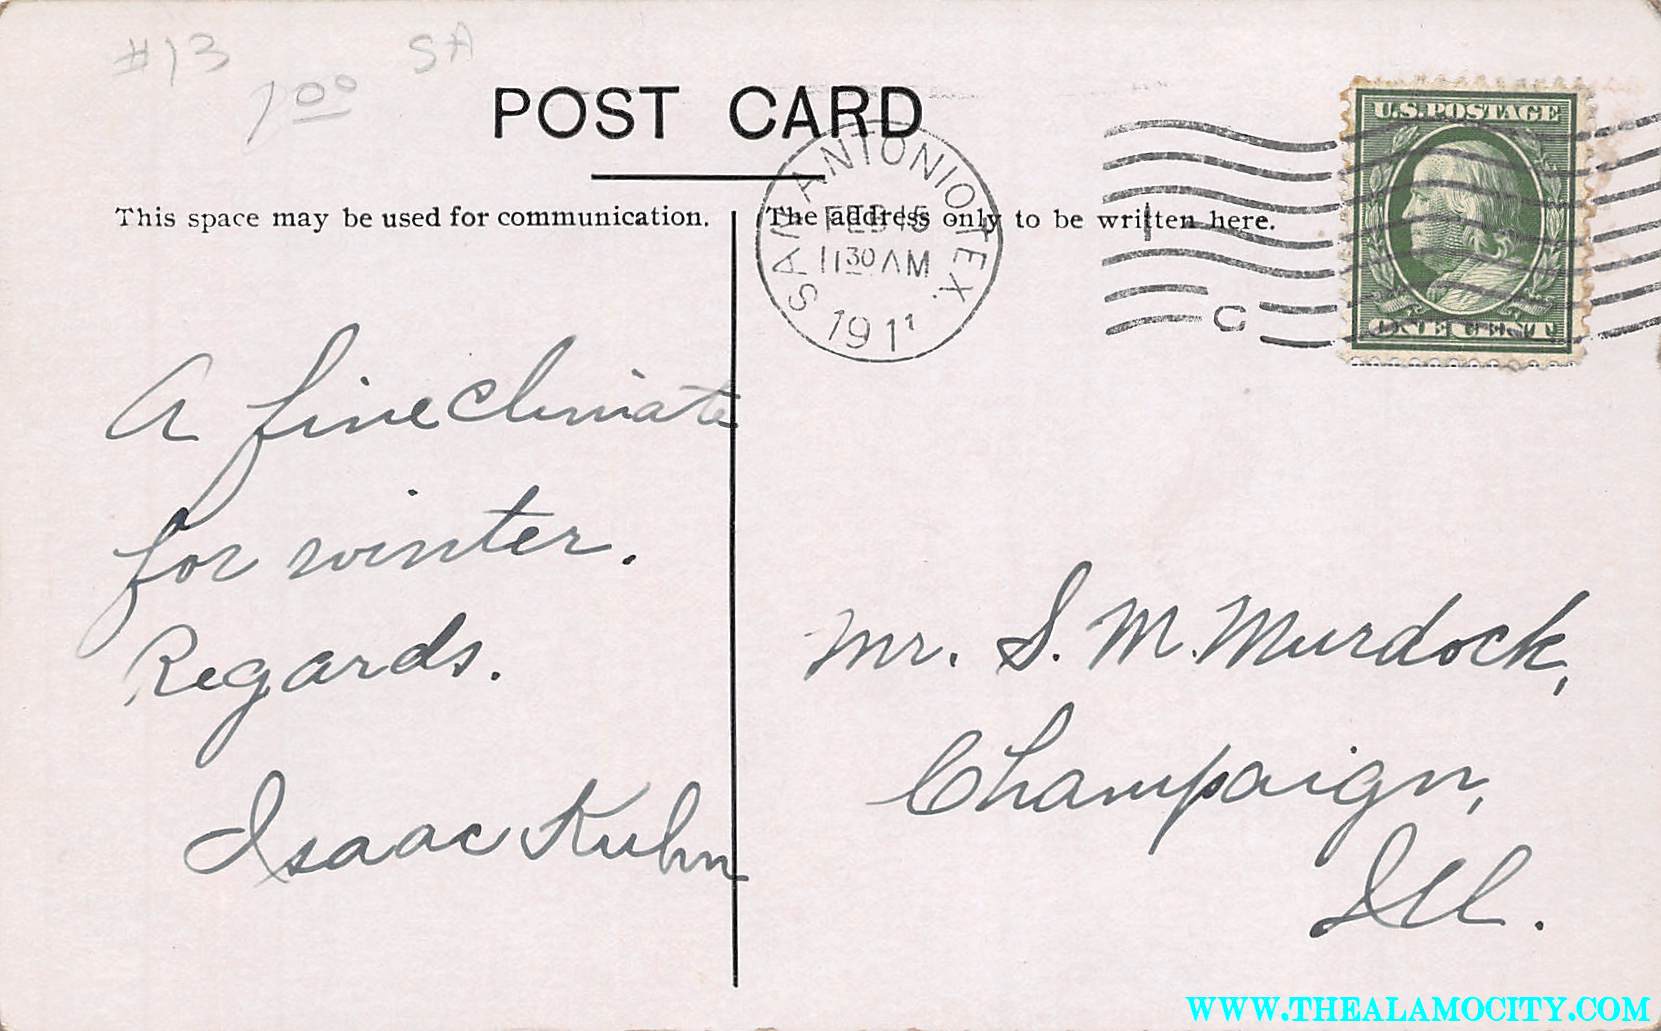 #13
1.00
SA
POST CARD
This space may be used for communication.
The address only to be written here.
SAN ANTONIO, TEX.
FEB 15
11 30 AM
1911
C
U.S. POSTAGE
ONE CENT
A fine climate
for winter.
Regards.
Isaac Kuhn
Mr. S. M. Murdock,
Champaign,
Ill.
WWW.THEALAMOCITY.COM